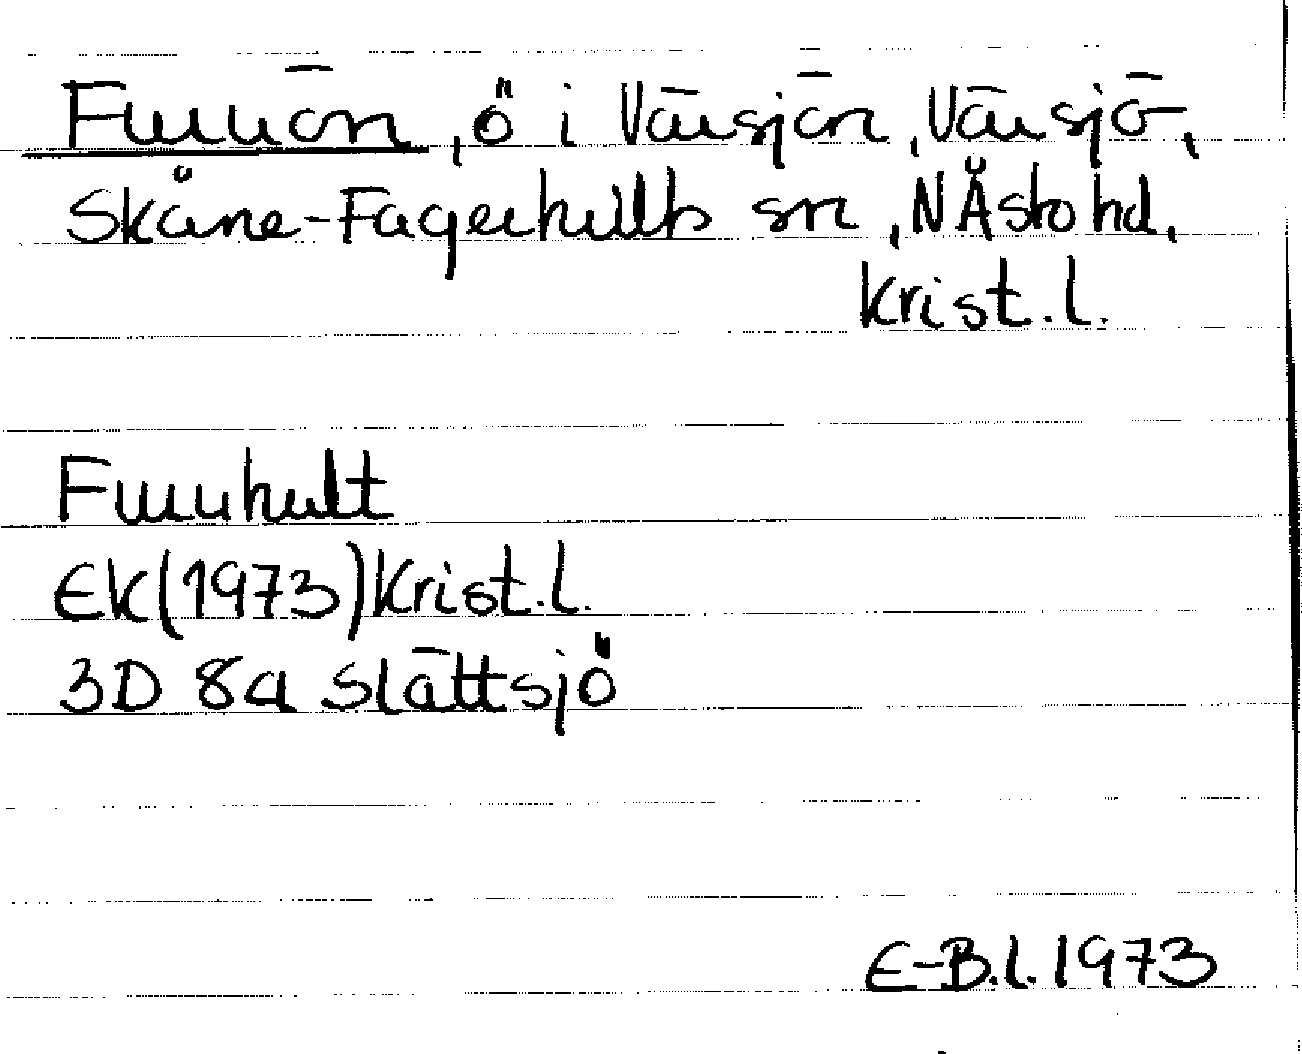 Furuön, ö i Värsjön, Värsjö,
Skåne-Fagerhults sn, NÅsbo hd,
Krist.l.
Furuhult
EK(1973)Krist.l.
3D 8a Slättsjö
E-B.l.1973